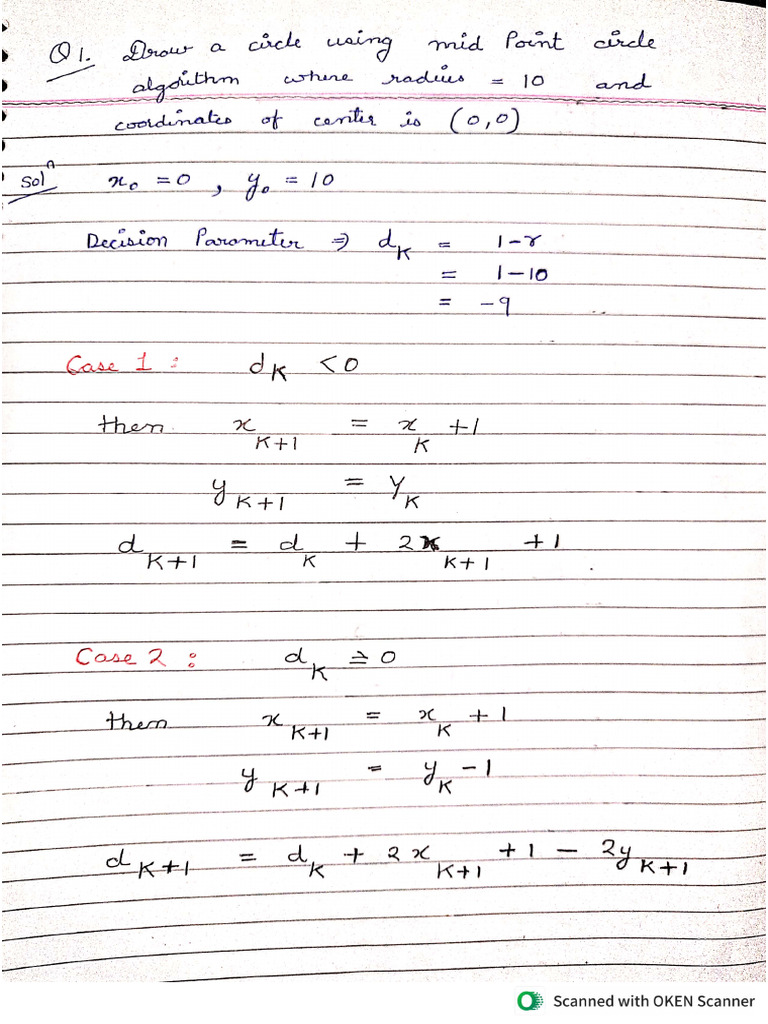 Q1. Draw a circle using mid Point circle
algorithm where radius = 10 and
coordinates of center is (0,0)
Solⁿ x₀ = 0 , y₀ = 10
Decision Parameter ⇒ d_K = 1-r
= 1-10
= -9
Case 1 : d_K < 0
then x_{K+1} = x_K + 1
y_{K+1} = y_K
d_{K+1} = d_K + 2x_{K+1} + 1
Case 2 : d_K ≥ 0
then x_{K+1} = x_K + 1
y_{K+1} = y_K - 1
d_{K+1} = d_K + 2x_{K+1} + 1 - 2y_{K+1}
Scanned with OKEN Scanner